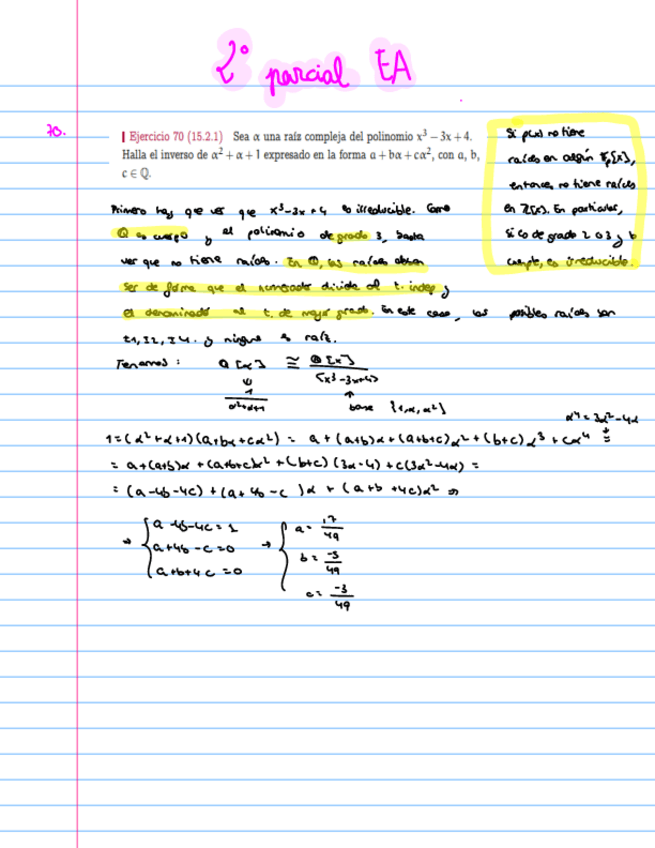 2º parcial EA
70.
Ejercicio 70 (15.2.1) Sea α una raíz compleja del polinomio x³ − 3x + 4.
Halla el inverso de α² + α + 1 expresado en la forma a + bα + cα², con a, b,
c ∈ ℚ.
Si p(x) no tiene
raíces en algún 𝔽p[x],
entonces no tiene raíces
en ℤ[x]. En particular,
si es de grado 2 o 3 y lo
cumple, es irreducible.
Primero hay que ver que x³-3x+4 es irreducible. Como
ℚ es cuerpo y el polinomio de grado 3, basta
ver que no tiene raíces. En ℚ, las raíces deben
ser de forma que el numerador divida al t. indep y
el denominador al t. de mayor grado. En este caso, las posibles raíces son
±1, ±2, ±4. y ninguna es raíz.
Tenemos: ℚ[α] ≅ ℚ[x] / <x³-3x+4>
Ψ ↑
1 / α²+α+1 base {1, α, α²}
α⁴ = 3α²-4α
1 = (α²+α+1)(a+bα+cα²) = a + (a+b)α + (a+b+c)α² + (b+c)α³ + cα⁴ =
= a+(a+b)α + (a+b+c)α² + (b+c)(3α-4) + c(3α²-4α) =
= (a-4b-4c) + (a+4b-c)α + (a+b+4c)α² ⇒
⇒ { a-4b-4c = 1 → { a = 17/49
a+4b-c = 0 b = -5/49
a+b+4c = 0 c = -3/49